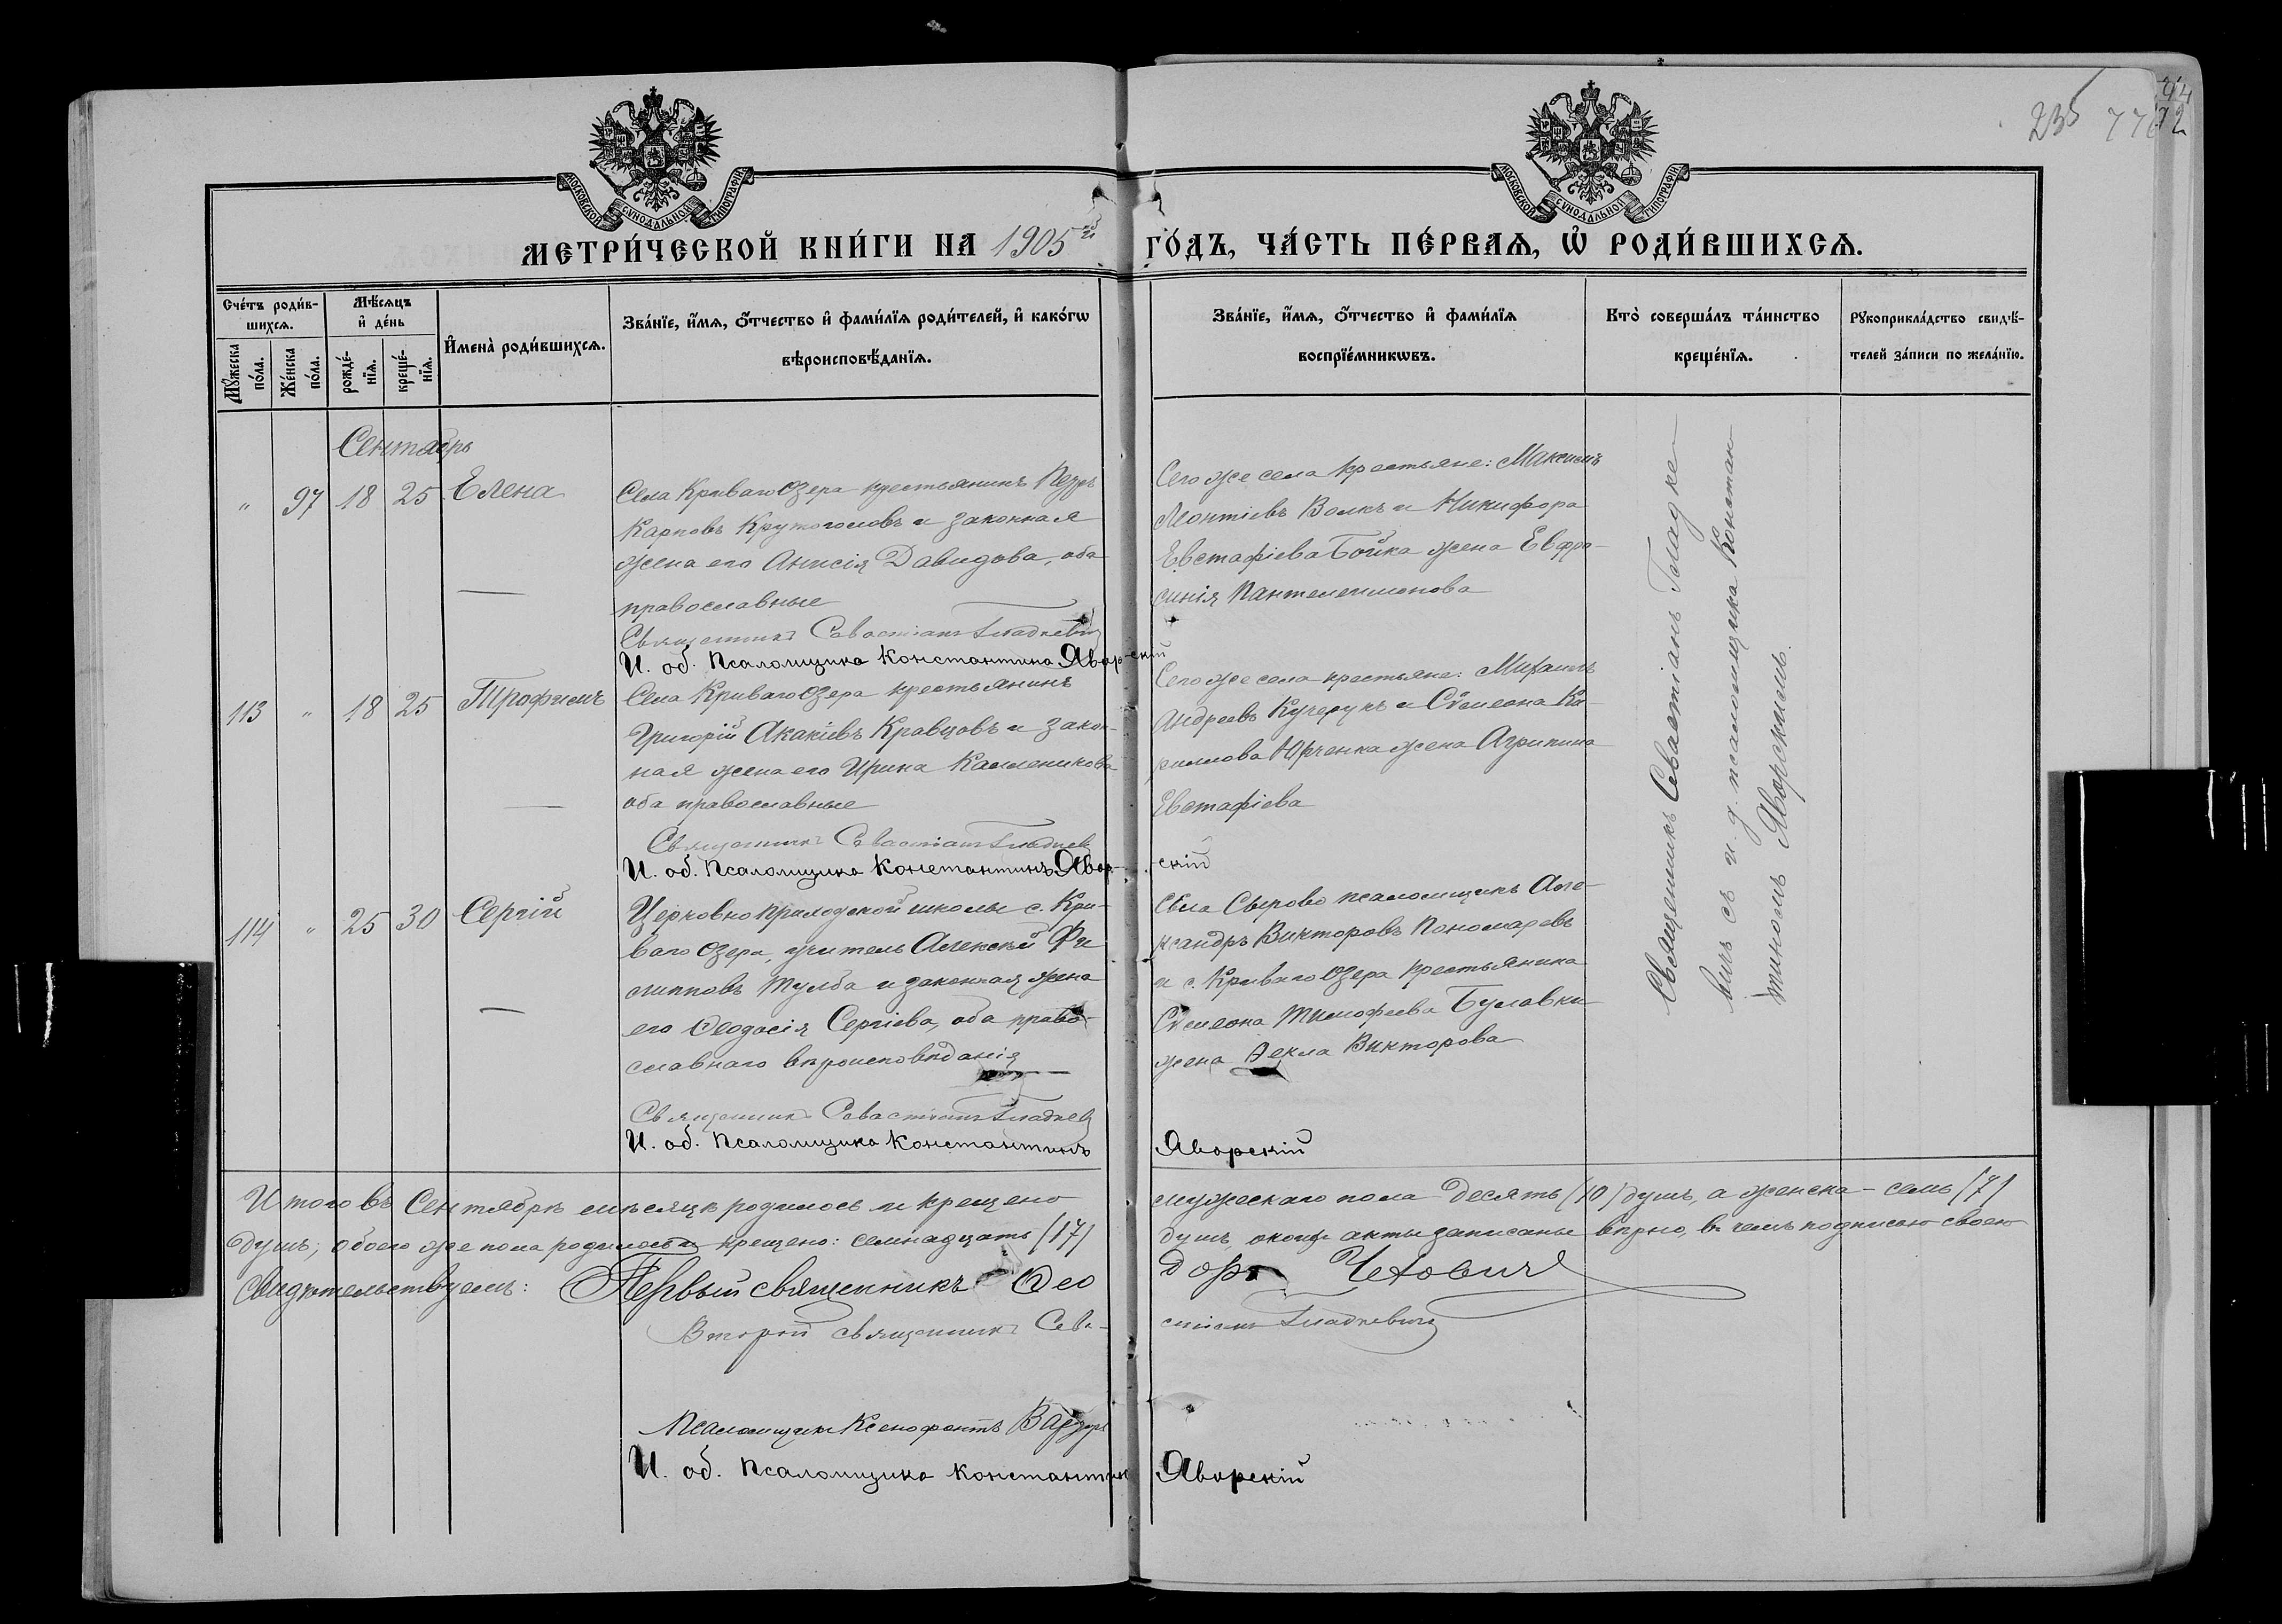 235
94
72
МОСКОВСКОЙ СѴНОДАЛЬНОЙ ТИПОГРАФІИ
МОСКОВСКОЙ СѴНОДАЛЬНОЙ ТИПОГРАФІИ
МЕТРИ́ЧЕСКОЙ КНИ́ГИ НА 1905й ГО́ДЪ, ЧА́СТЬ ПЕ́РВАѦ, Ѡ҆ РОДИ́ВШИХСѦ.
Сче́тъ роди́в-
шихсѧ.
Мꙋ́жеска
по́ла.
Же́нска
по́ла.
Мѣ́сѧцъ
и҆ де́нь
рожде́-
нїѧ.
креще́-
нїѧ.
И҆мена̀ роди́вшихсѧ.
Зва́нїе, и҆́мѧ, ѻ҆́тчество и҆ фами́лїѧ роди́телей, и҆ како́гѡ
вѣроисповѣ́данїѧ.
Зва́нїе, и҆́мѧ, ѻ҆́тчество и҆ фами́лїѧ
воспрїе́мникѡвъ.
Кто̀ соверша́лъ та́инство
креще́нїѧ.
Рꙋкоприкла́дство свидѣ́-
телей за́писи по жела́нїю.
Сентябрь
" 97 18 25 Елена
Села Криваго Озера крестьянинъ Петръ
Карповъ Крутоголовъ и законная
жена его Анисія Давидова, оба
православные
Священникъ Севастіанъ Гладкевичъ
И. об. Псаломщика Константинъ Явор-скій
Сего же села крестьяне: Максимъ
Леонтіевъ Волкъ и Никифора
Евстафіева Бойка жена Евфро-
синія Пантелеимонова
113 " 18 25 Трофимъ
Села Криваго Озера крестьянинъ
Григорій Акакіевъ Кравцовъ и закон-
ная жена его Ирина Каллениковa
оба православные
Священникъ Севастіанъ Гладкев
И. об. Псаломщика Константинъ Явор-скій
Сего же села крестьяне: Михаилъ
Андреевъ Кучерукъ и Стефана Ки-
риллова Юрченка жена Агрипина
Евстафіева
114 " 25 30 Сергій
Церковно приходской школы с. Кри-
ваго Озера, учитель Алексѣй Фи
липповъ Тулба и законная жена
его Ѳеодосія Сергіева, оба право-
славнаго вѣроисповѣданія
Священникъ Севастіанъ Гладкев
И. об. Псаломщика Константинъ Яворскій
Села Сырово псаломщикъ Але-
ксандръ Викторовъ Пономаревъ
и с. Криваго Озера крестьянина
Симеона Тимофеева Булавки
жена Ѳекла Викторова
Священникъ Севастіанъ Гладке
вичъ съ и. д. псаломщика Констан
тиномъ Яворскимъ.
Итого въ Сентябрѣ мѣсяцѣ родилось и крещено мужескаго пола десять (10) душъ, а женска - семь (7)
душъ; обоего же пола родилось и крещено: семнадцать (17) душъ, о коихъ акты записаны вѣрно, въ чемъ подписью своею
свидѣтельствуемъ: Первый священникъ Ѳеодоръ Чехович
Второй священникъ Севастіанъ Гладкевичъ
Псаломщикъ Ксенофонтъ
И. об. Псаломщика Константинъ Яворскій